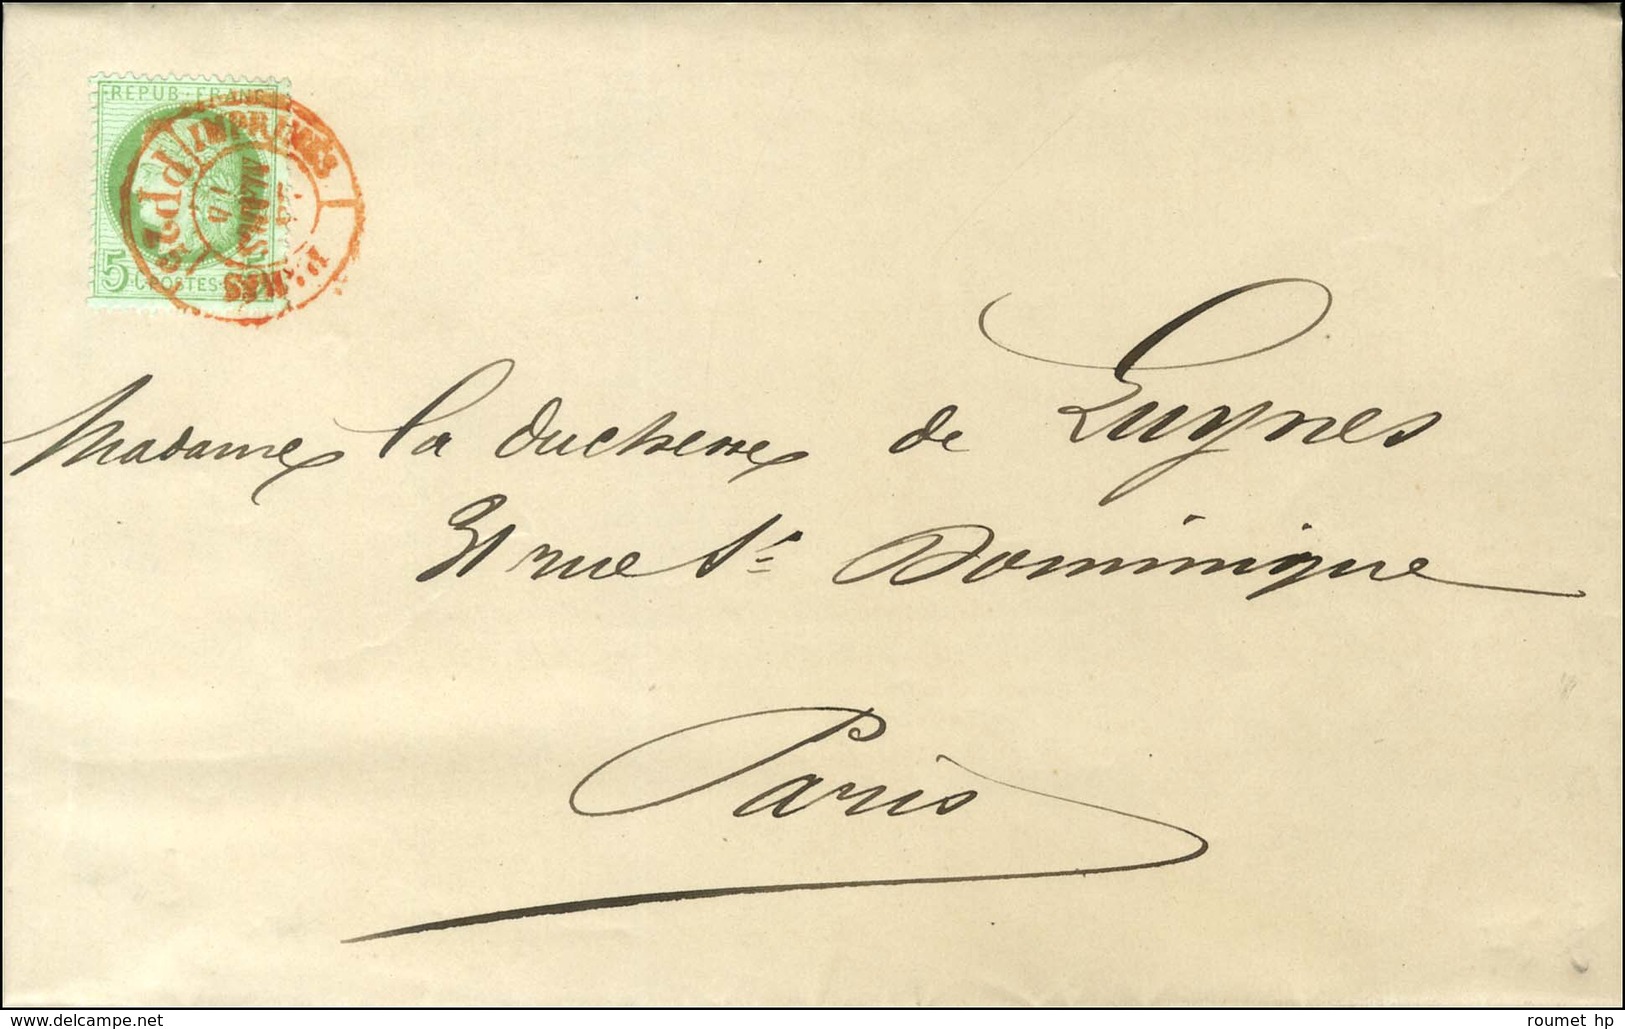 REPUB · FRANC
IMPRIMÉS
PP25
MARS
PARIS
5 C POSTES
Madame la duchesse de Luynes
31 rue St Dominique
Paris
www.delcampe.net
roumet hp